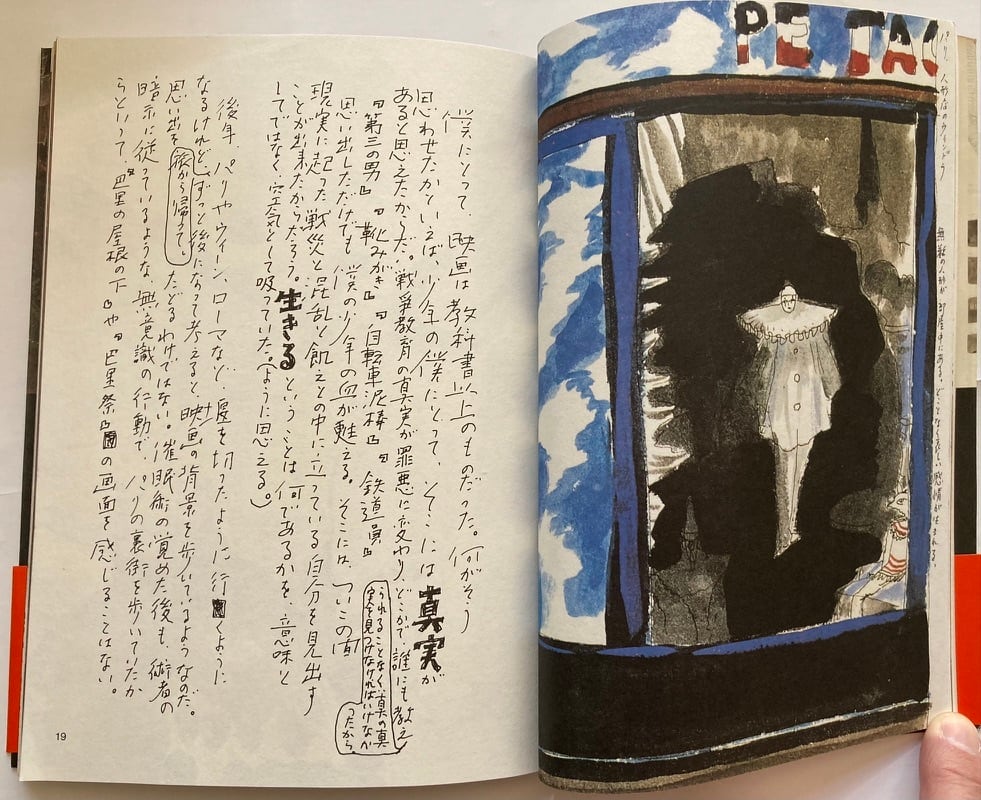 PE TAC
パリ、人形店のウインドウ
無数の人形が部屋中にある。どことなく哀しい感情が生まれる。
僕にとって、映画は教科書以上のものだった。何がそう
思わせたかといえば、少年の僕にとって、そこには真実が
あると思えたからだ。戦争教育の真実が罪悪に変わり、どこかで誰にも教え
られることなく、真の真
実を見つめなければいけなか
ったから。
『第三の男』『靴みがき』『自転車泥棒』『鉄道員』
思い出しただけでも僕の少年の血が甦える。そこには、ついこの間
現実に起った戦災と混乱と飢えとの中に立っている自分を見出す
ことが出来たからだろう。生きるということは何であるかを、意味と
してではなく、空気として吸っていた。(ように思える。)
後年 パリやウィーン、ローマなど、堰を切ったように行くように
なるけれど、ずっと後になって考えると映画の背景を歩いているようなのだ。
思い出を旅から帰ってもたどるわけではない。催眠術の覚めた後も、術者の
暗示に従っているような、無意識の行動で、パリの裏街を歩いていたか
らといって、『巴里の屋根の下』や『巴里祭』の画面を感じることはない。
19